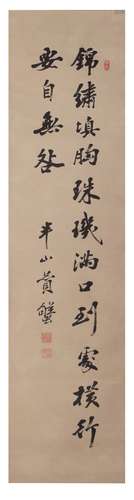 錦繡填胸珠璣滿口到處橫行
要自無咎
半山黄蟹